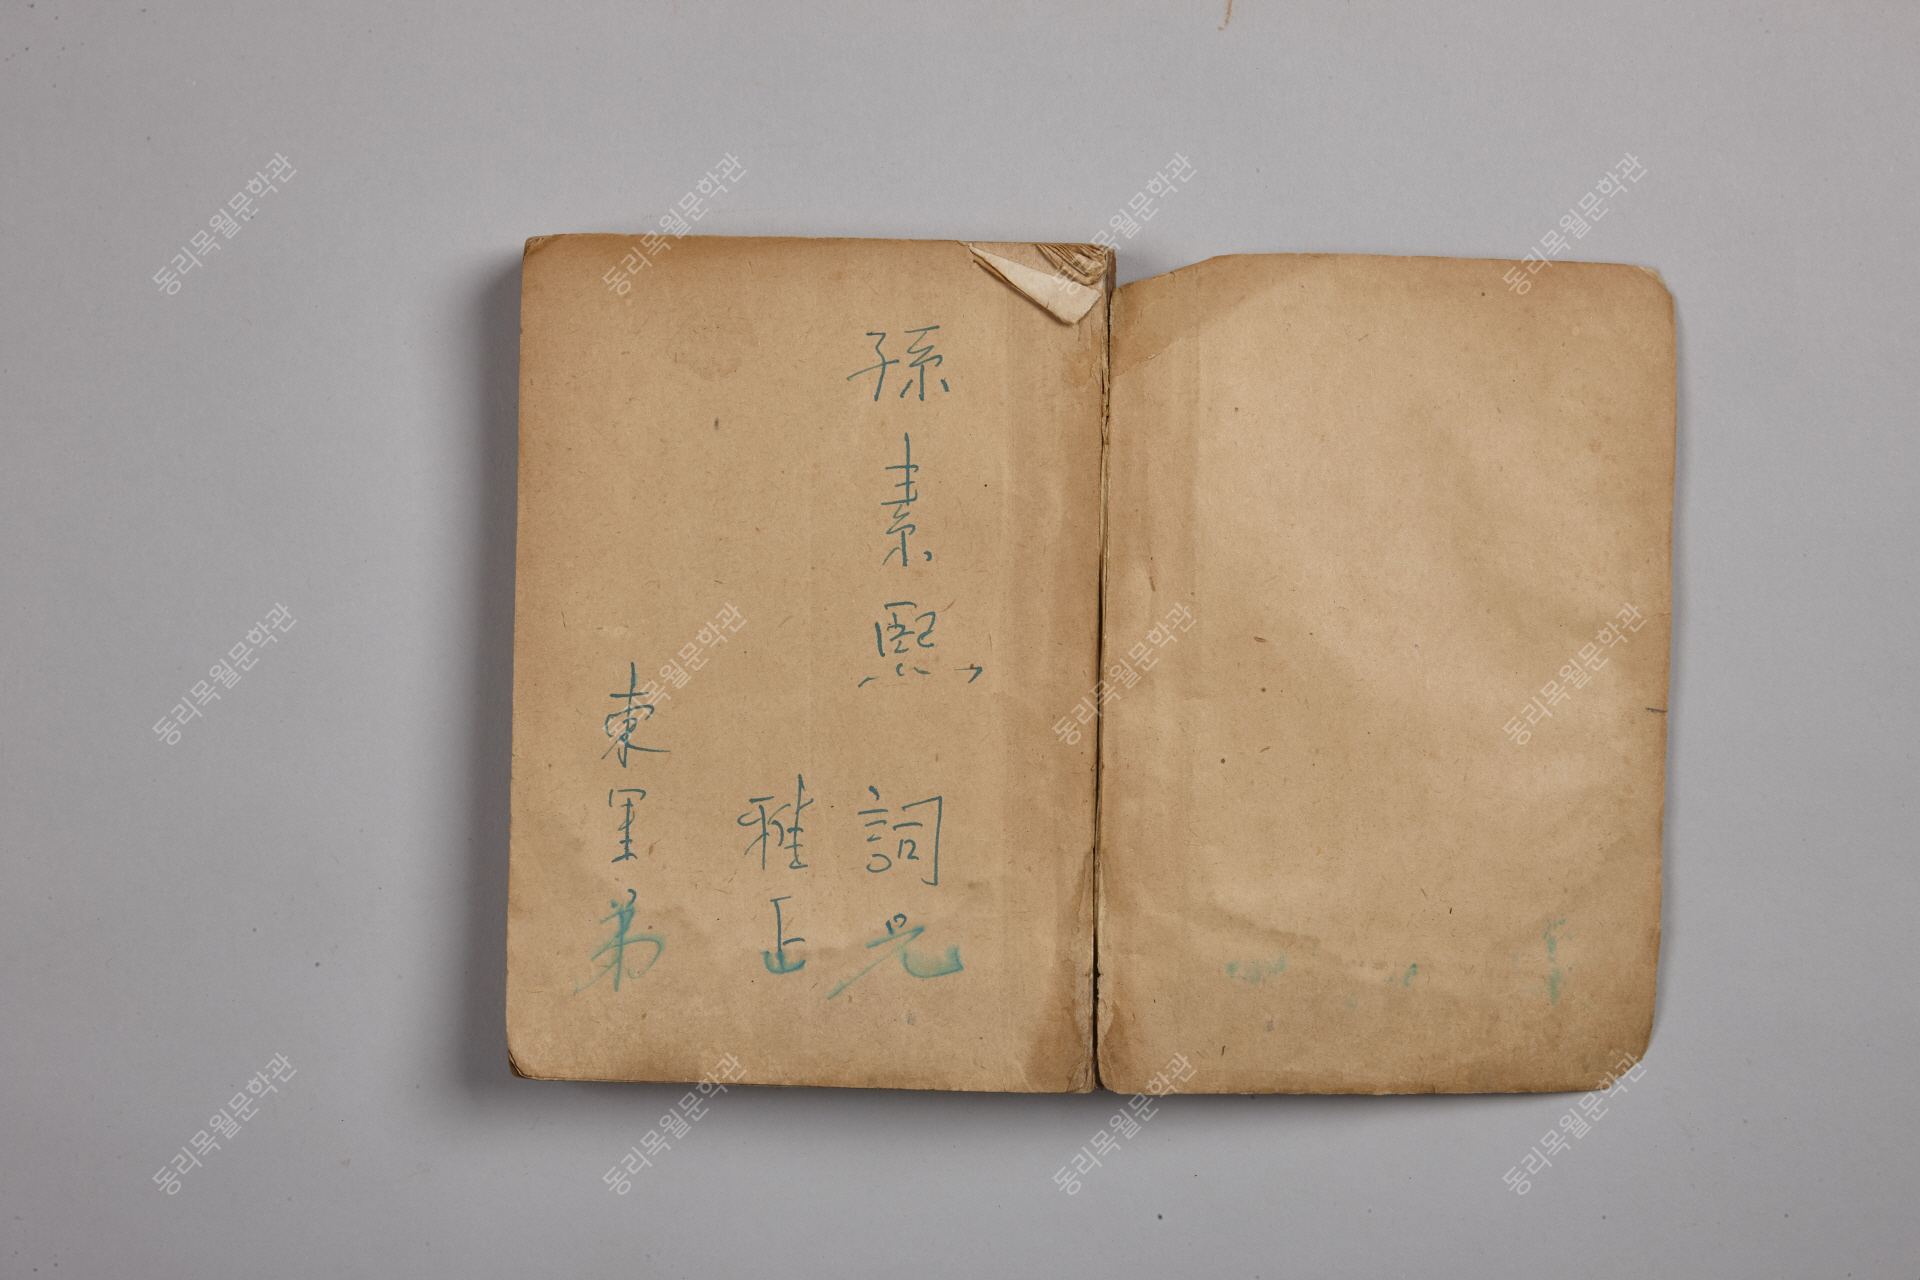 孫素熙 詞兄
雅正
東里弟
동리목월문학관
동리목월문학관
동리목월문학관
동리목월문학관
동리목월문학관
동리목월문학관
동리목월문학관
동리목월문학관
동리목월문학관
동리목월문학관
동리목월문학관
동리목월문학관